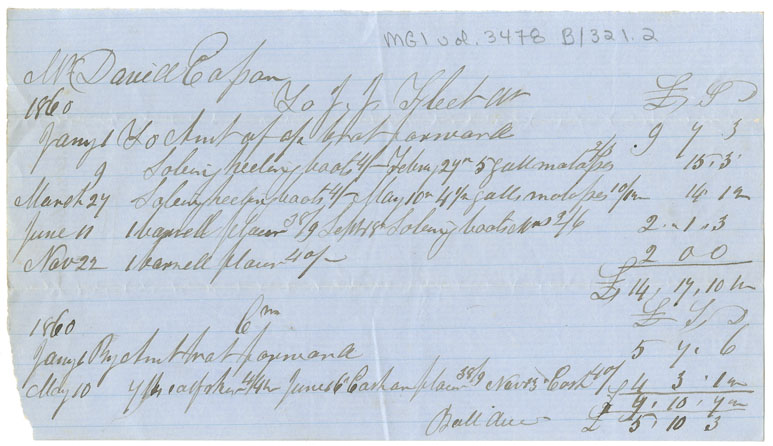 MG1 vol. 3478 B/321.2
Mr David Eason
1860 To J. J. Fleet Dr £ S D
Jany 1 To Amt of a/c brot forward 9 7 3
9 Soleing heeling boots 4/- Feby 27th 5 galls molasses 2/3 15. 3
March 27 Soleing heeling boots 4/- May 10th 4 1/2 galls molasses 10/1½ 14 1½
June 11 1 barrell flour 38/9 Sept 18 Soleing boots 2/6 2. 1. 3
Nov 22 1 barrell flour 40/- 2 0 0
£ 14, 17, 10½
1860 Cr £ S D
Jany 1 By Amt brot forward 5 7. 6
May 10 calfskin 4/4½ June 6 Cash on flour 38/9 Nov 13 Cash 40/ 4 3. 1½
9. 10. 7½
Ballance £ 5 10 3